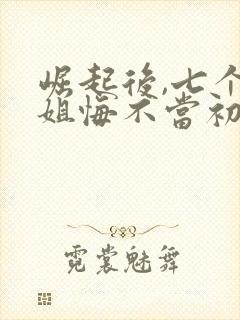 崛起後,七个
姐悔不當初
霓裳魅舞